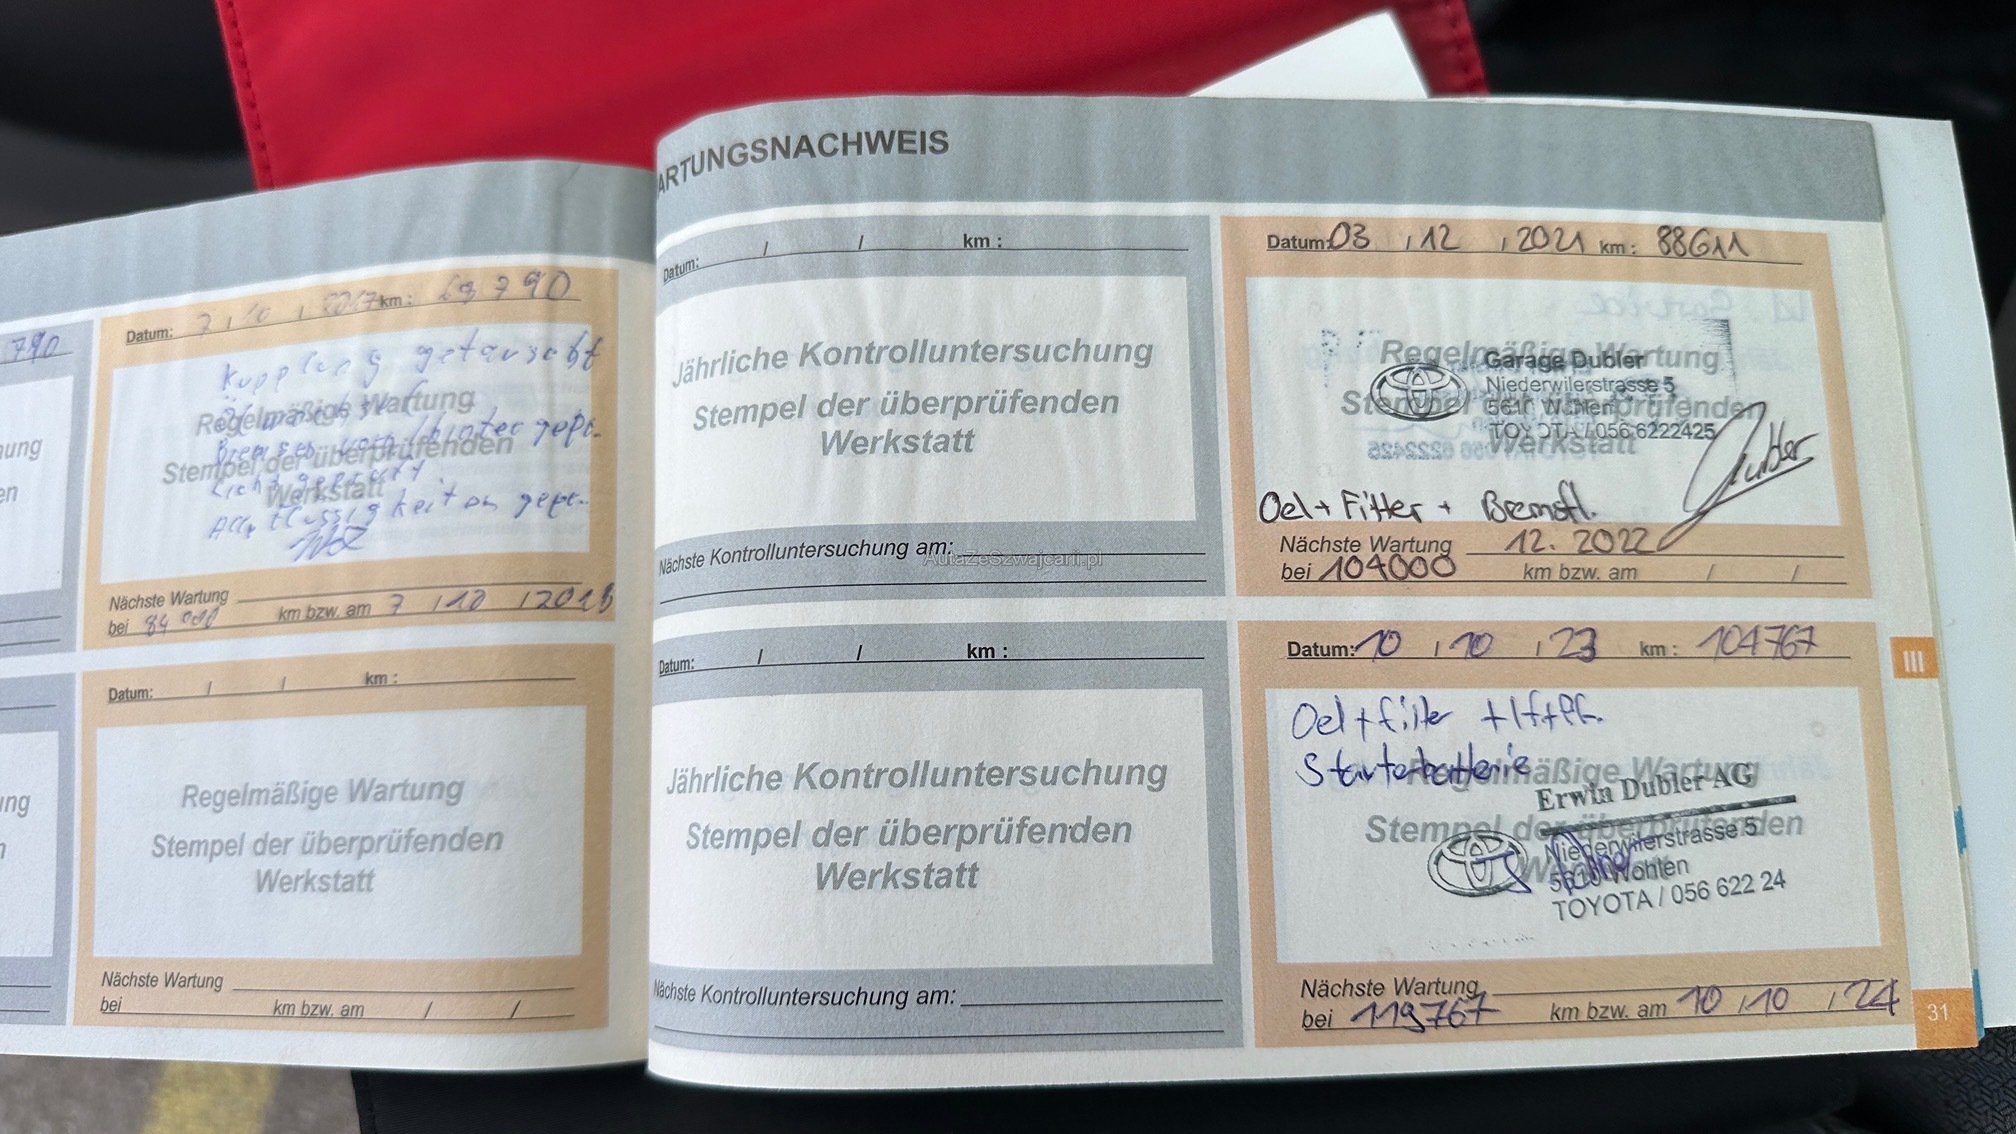 790
ung
en
Datum: 7 / 10 / 2017 km: 69790
Kupplung getauscht
Regelmäßige Wartung
Bremsen vorn/hinter gepr.
Stempel der überprüfenden
Licht geprüft.
Werkstatt
Alle Flüssigkeiten gepr.
Nächste Wartung
bei 84 000 km bzw. am 7 / 10 / 2018
ung
n
Datum: / / km :
Regelmäßige Wartung
Stempel der überprüfenden
Werkstatt
Nächste Wartung
bei km bzw. am / /
ARTUNGSNACHWEIS
Datum: / / km :
Jährliche Kontrolluntersuchung
Stempel der überprüfenden
Werkstatt
Nächste Kontrolluntersuchung am:
AutaZeSzwajcarii.pl
Datum: 03 / 12 / 2021 km : 88611
Regelmäßige Wartung
Garage Dubler
Niederwilerstrasse 5
Stempel der überprüfenden
5610 Wohlen
TOYOTA / 056 6222425
Werkstatt
Dubler
Oel + Filter + Bremsfl.
Nächste Wartung 12. 2022
bei 104000 km bzw. am / /
Datum: / / km :
Jährliche Kontrolluntersuchung
Stempel der überprüfenden
Werkstatt
Nächste Kontrolluntersuchung am:
Datum: 10 / 10 / 23 km : 104767
Oel + Filter + If + Pf.
Starterbatterie
Regelmäßige Wartung
Erwin Dubler AG
Stempel der überprüfenden
Niederwilerstrasse 5
Werkstatt
5610 Wohlen
TOYOTA / 056 622 24
Nächste Wartung
bei 119767 km bzw. am 10 / 10 / 24
III
31